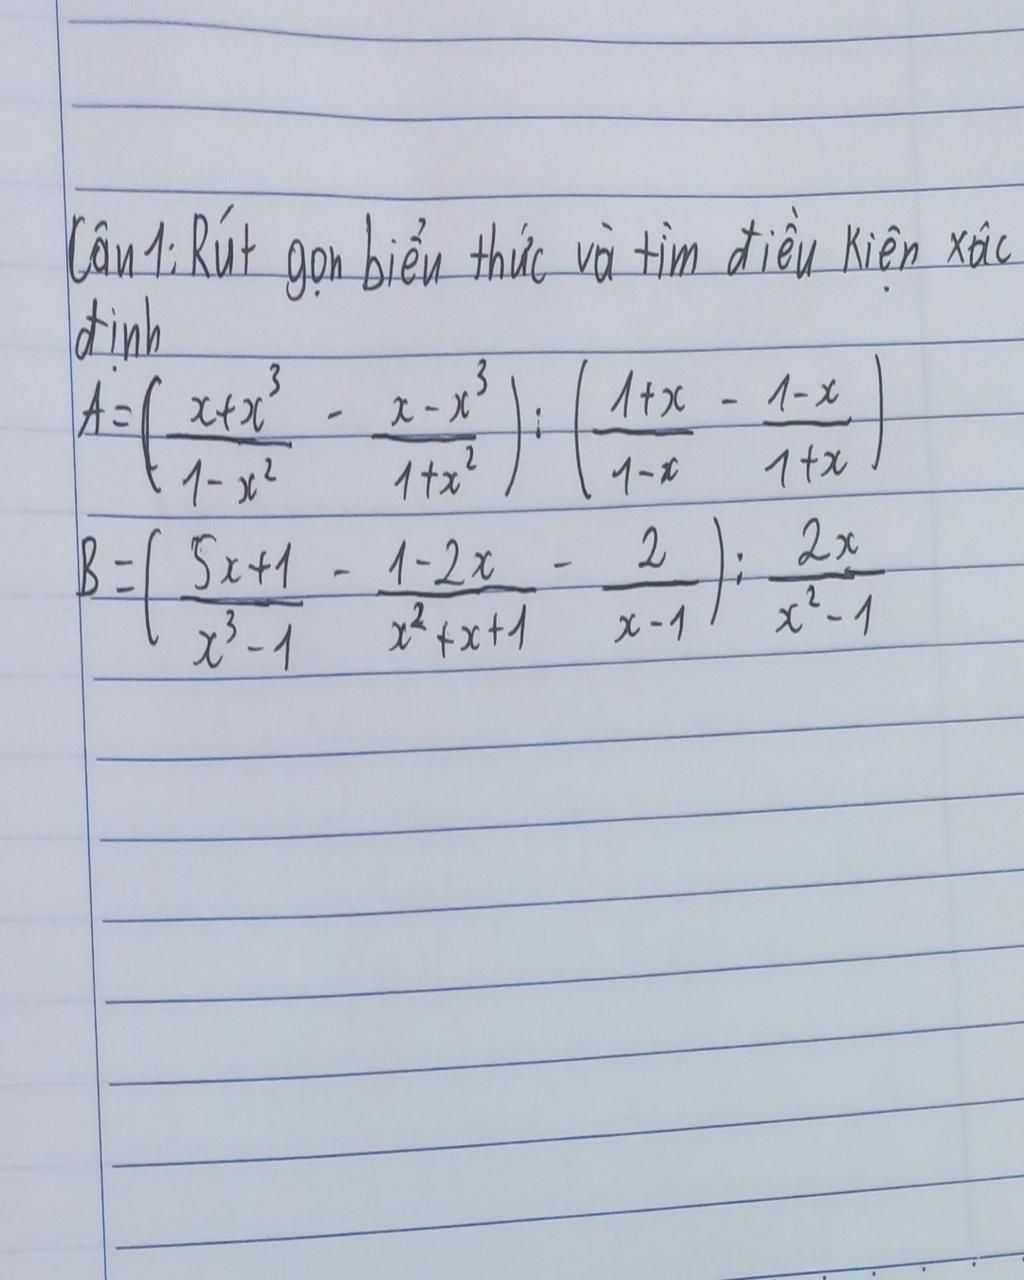 Câu 1: Rút gọn biểu thức và tìm điều kiện xác
định
A = ( (x+x³)/(1-x²) - (x-x³)/(1+x²) ) : ( (1+x)/(1-x) - (1-x)/(1+x) )
B = ( (5x+1)/(x³-1) - (1-2x)/(x²+x+1) - 2/(x-1) ) : 2x/(x²-1)